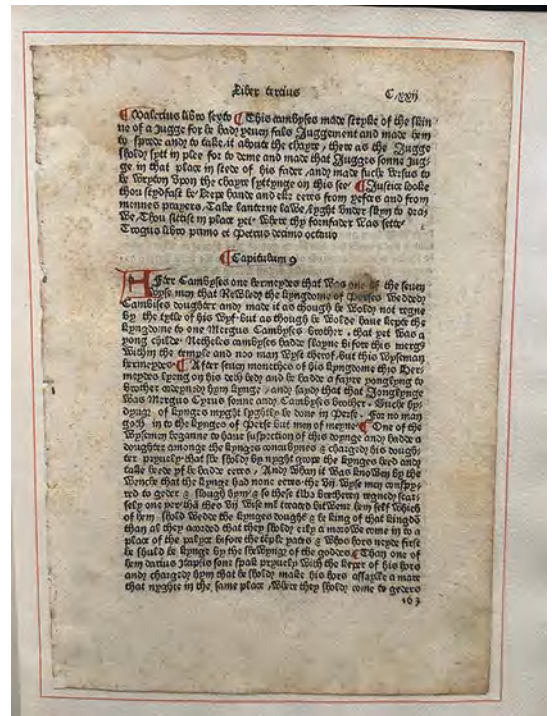 Liber tercius C,xxij
¶Valerius libro sexto ¶This cambyses made strype of the skin
ne of a Jugge for he hady yeuen fals Juggement and made hem
to sprede and to take it aboute the chayre, there as the Jugge
sholdy sytt in plee for to deme and made that Jugges sonne Jug-
ge in that place in stede of his fader, andy made suche versus to
be wryton vpon the chayre syttynge on this see ¶Justice looke
thou stydfast be kepe hande and eke eeres from yeftes and from
mennes prayers, Take lanterne lawe lyght vnder skyn to
we, Thou sittist in place yet where thy fornfader was sette
Trogus libro primo et Petrus decimo octauo
¶Capitulum 9
After Cambyses one hermeydes that was one of the seuen
wyse men that Rewledy the kyngdome of Perses weddedy
Cambises doughter andy made it as though he woldy not regne
by the tytle of his wyf but as though he wolde haue kepte the
kyngdome to one Mergus Cambyses brother, that yet was a
yong childe Netheles cambyses hadde slayne bifore this mergus
within the temple and noo man wyst therof, but this wyseman
hermeydes ¶After seuen monethes of his kyngdome this Her-
meydes lyeng on his deth bedy and he hadde a fayre yonglyng to
brother ordeynedy hym kynge, andy saydy that that Jonglynge
was Mergus Cyrus sonne andy Cambyses brother, Suche hy-
dynge of kynges myght lyghtly be done in Perse, For no man
goth in to the kynges of Perse but men of meyne ¶One of the
wysemen beganne to haue suspection of this doynge andy hadde a
doughter amonge the kynges concubynes & chargedy his dough-
ter pryuely that she sholdy by nyght grope the kynges heed andy
take heede yf he hadde eeres, Andy whan it was knowen by the
wenche that the kynge had none eeres the vij wyse men conspy-
red to geder & slough hym & so these two bretheren regnedy scar-
sely one yere tha theo vij wise me treated bitwene hem self which
of hem shold wedde the kynges doughter & be king of that kingdo
than al they acorded that they sholdy erly a morowe come in to a
place of the palays bifore the teple yates & whos hors neyde first
he should be kynge by the shewyng of the goddes ¶Than one of
hem darius Itapsis sone spak pryuely with the keper of his hors
andy chargedy hym that he sholdy make his hors assayle a mare
that nyghte in the same place, where they sholdy come to geders
163